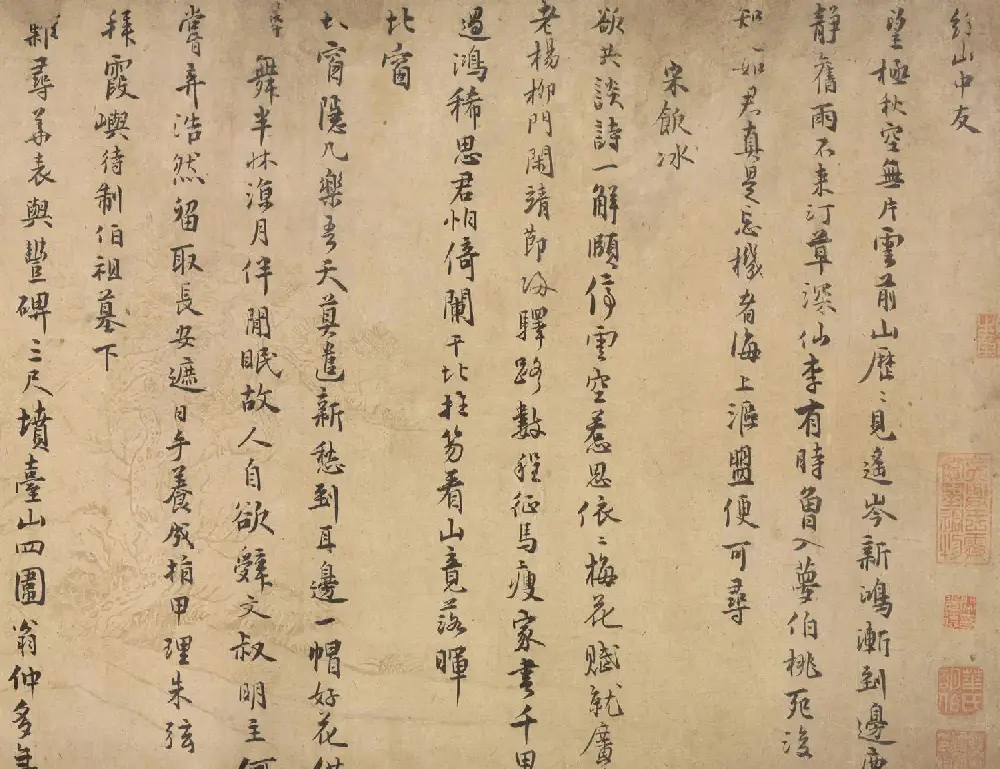 約山中友
望極秋空無片雲前山歷〻見遙岑新鴻漸到邊
靜舊雨不來汀草深仙李有時曾入夢伯桃死後
知如君真是忘機者海上漚盟便可尋
宋飲冰
欲共談詩一解頤停雲空惹思依〻梅花賦就廣
老楊柳門閑靖節歸驛路數程征馬瘦家書千里
過鴻稀思君怕倚闌干北拄笏看山竟落暉
北窗
北窗隱几樂吾天莫遣新愁到耳邊一帽好花供
舞半床涼月伴閒眠故人自欲辭文叔明主何
嘗棄浩然留取長安遮日手養成指甲理朱弦
拜霞嶼待制伯祖墓下
尋華表與豐碑三尺墳臺山四圍翁仲多年